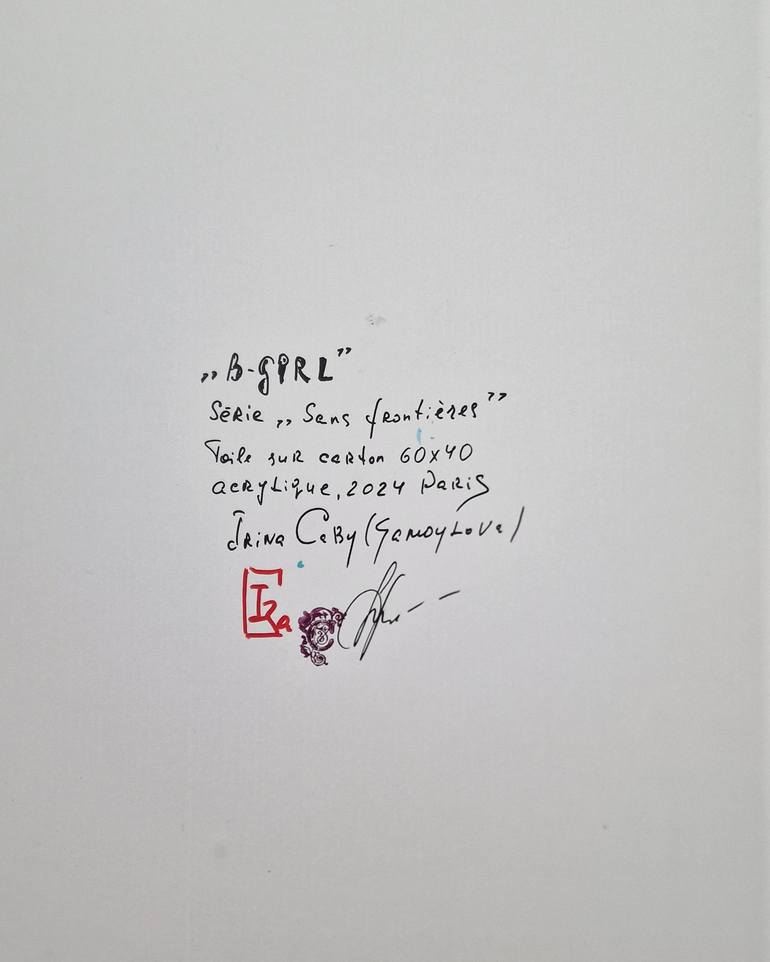 „B-GIRL”
Série „Sans frontières”
Toile sur carton 60x40
acrylique, 2024 Paris
Irina Caby (Samoylova)